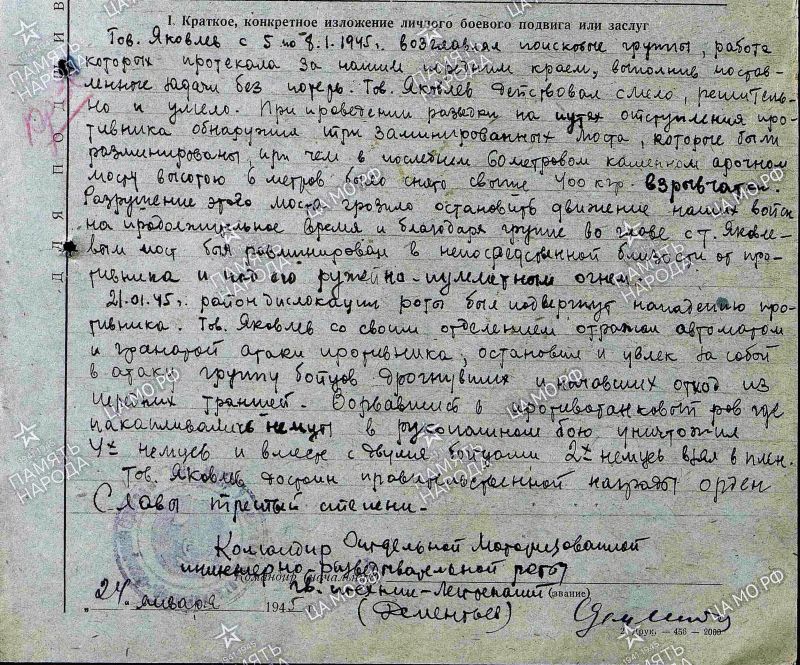 I. Краткое, конкретное изложение личного боевого подвига или заслуг
Тов. Яковлев с 5 по 8.1.1945г. возглавлял поисковые группы, работа
которых протекала за нашим передним краем, выполнив постав-
ленные задачи без потерь. Тов. Яковлев действовал смело, решитель-
но и умело. При проведении разведки на путях отступления про-
тивника обнаружил три заминированных моста, которые были
разминированы, при чем в последнем 60 метровом каменном арочном
мосту высотою 6 метров было снято свыше 400 кгр. взрывчатки.
Разрушение этого моста грозило остановить движение наших войск
на продолжительное время и благодаря группе во главе с т. Яковле-
вым мост был разминирован в непосредственной близости от про-
тивника и под его ружейно-пулеметным огнем.
21.01.45г. район дислокации роты был подвергнут нападению про-
тивника. Тов. Яковлев со своим отделением отражал автоматом
и гранатой атаки противника, остановил и увлек за собой
в атаку группу бойцов дрогнувших и начавших отход из
передних траншей. Ворвавшись в противотанковый ров где
накапливались немцы в рукопашном бою уничтожил
4х немцев и вместе с двумя бойцами 2х немцев взял в плен.
Тов. Яковлев достоин правительственной награды орден
Славы третьей степени.
Командир Отдельной Моторизованной
инженерно-разведывательной роты
Командир (начальник)
Гв. Лейтенант (звание)
24 января 1945 г. (Дементьев)
2 Друк. — 456 — 2000
ДЛЯ ПОДШИВ
ПАМЯТЬ НАРОДА
ЦАМО.РФ